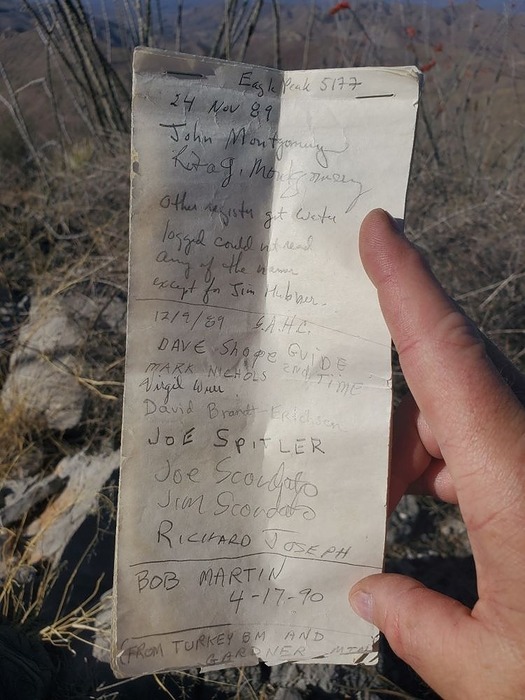 Eagle Peak 5177
24 Nov 89
John Montgomery
Rita J. Montgomery
Other register got water
logged could not read
any of the names
except for Jim Hubbner.
12/9/89 S.A.H.C.
DAVE Shope GUIDE
MARK NICHOLS 2nd TIME
Virgil
David Brandt-Erichsen
JOE SPITLER
Joe Scoudato
Jim Scoudato
RICHARD JOSEPH
BOB MARTIN
4-17-90
(FROM TURKEY BM AND
GARDNER MTN